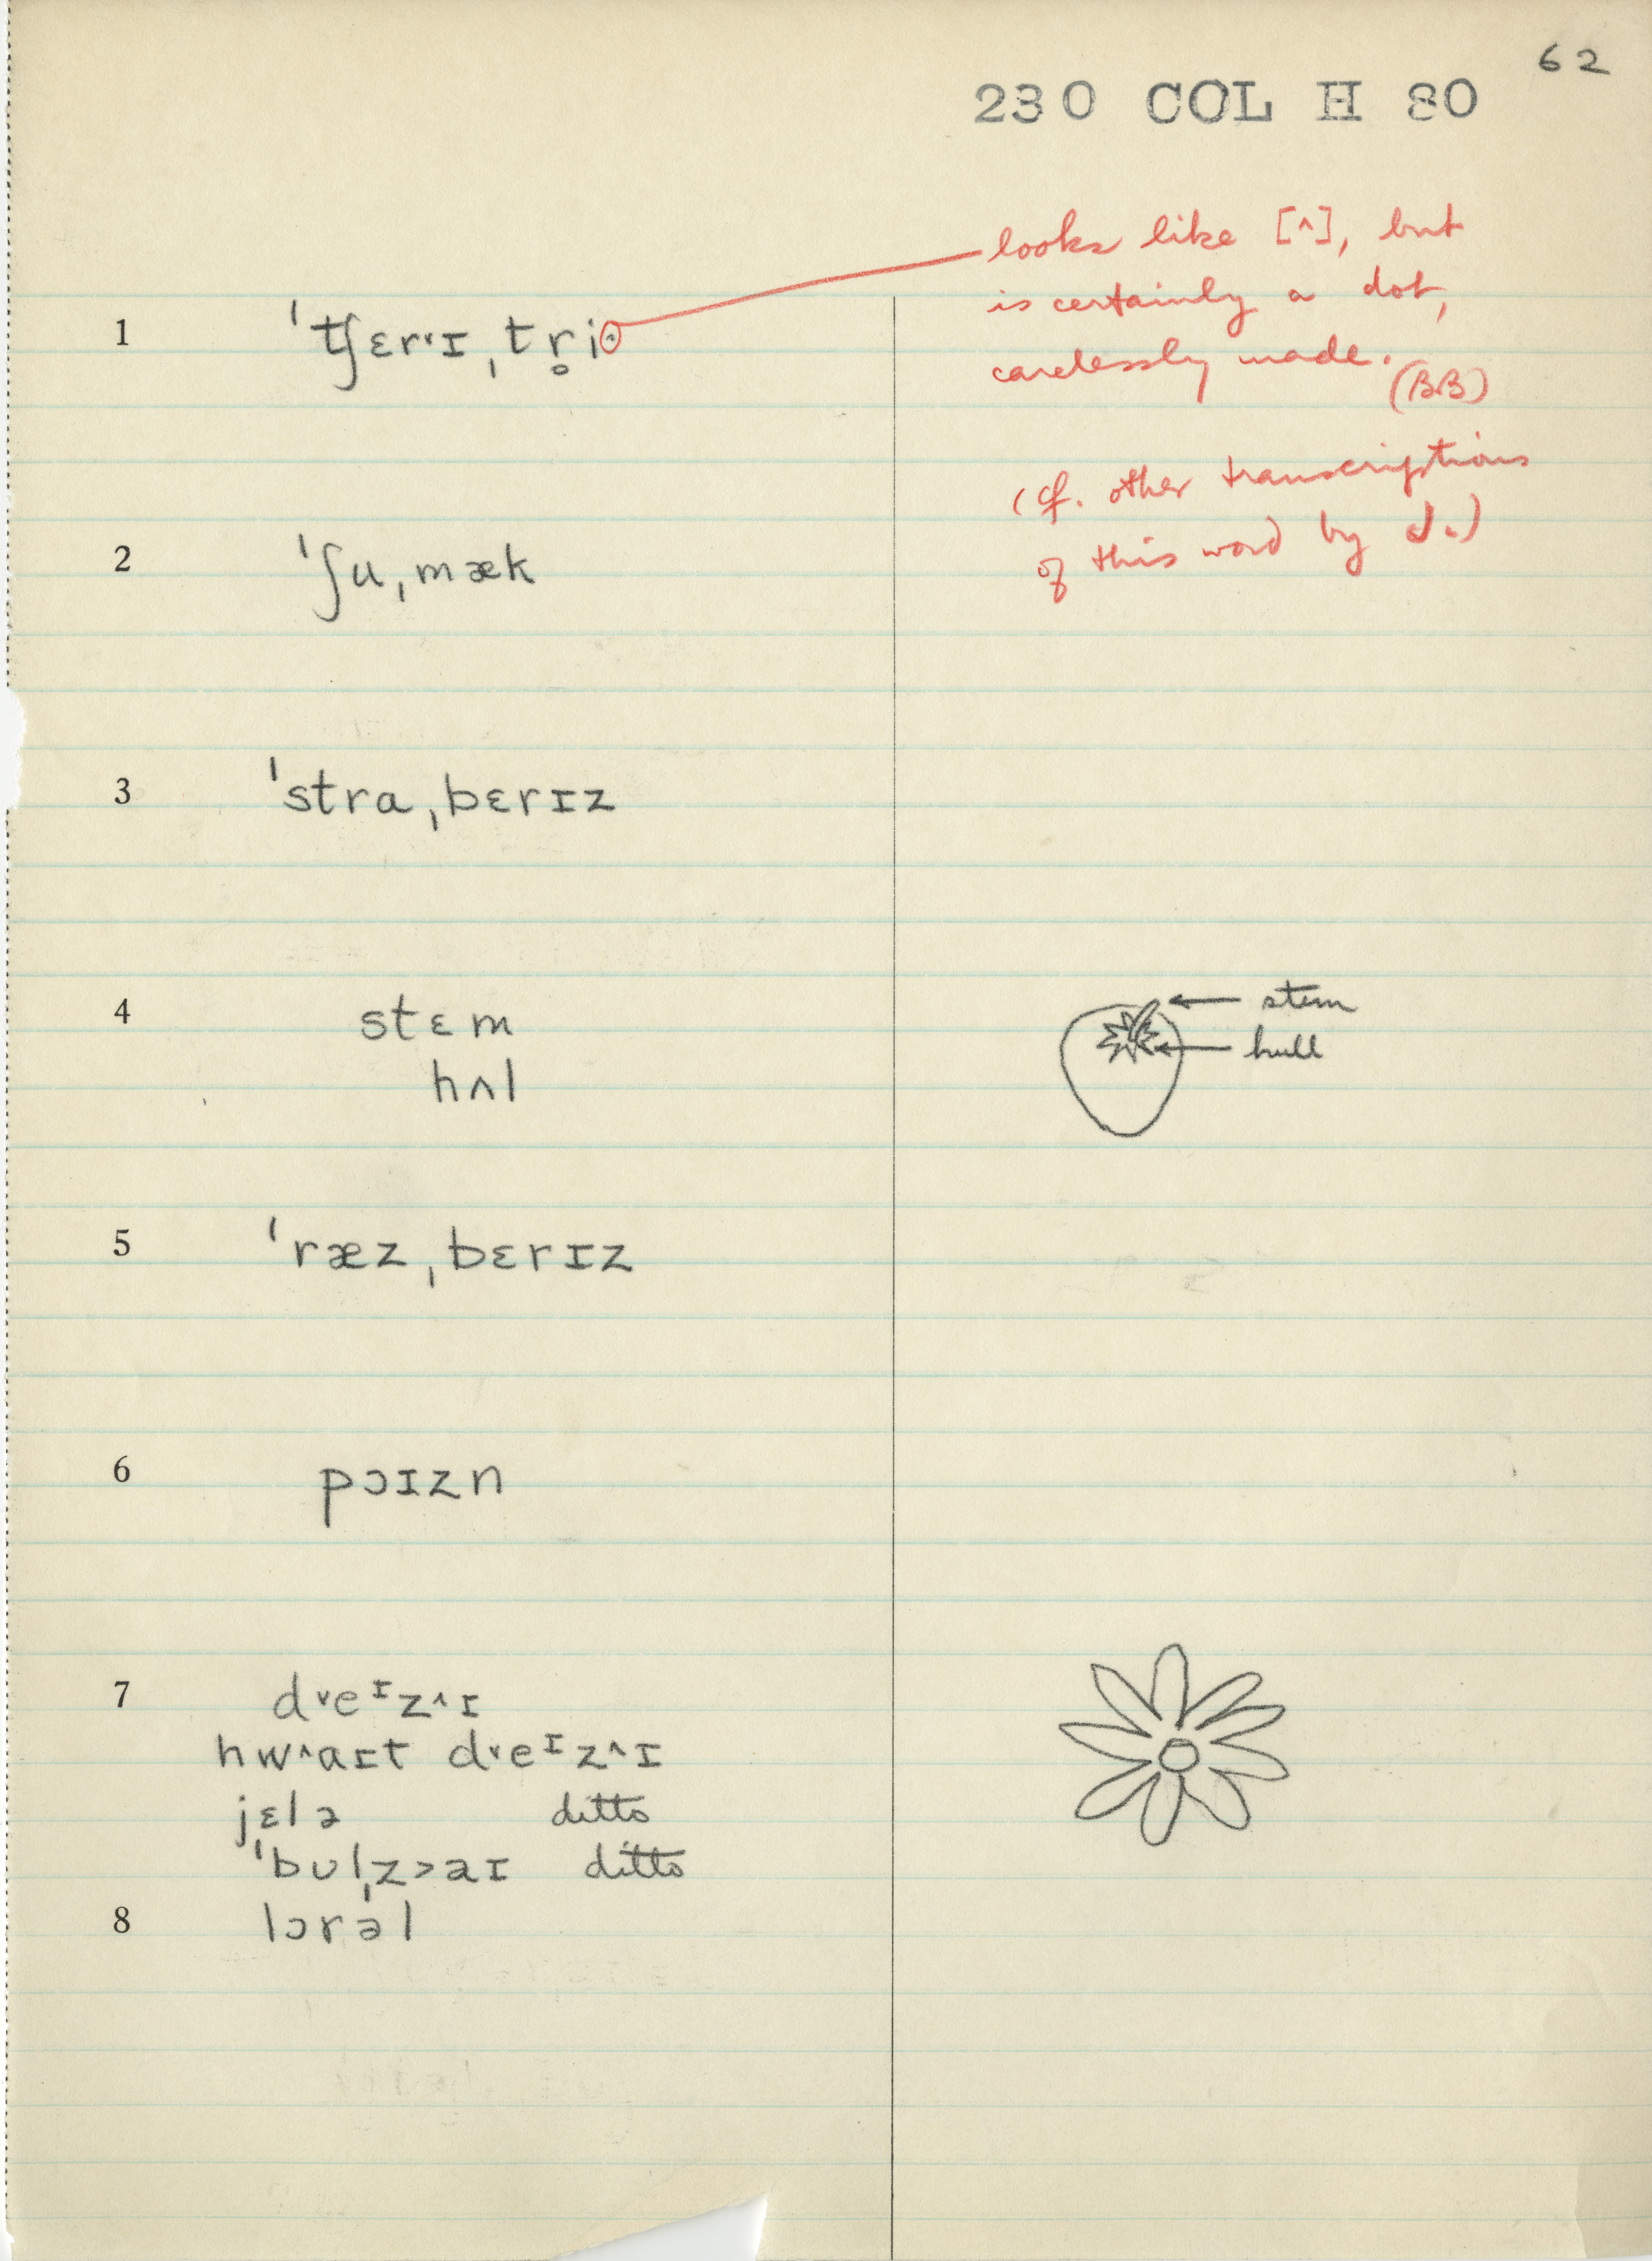 62
230 COL H 80
looks like [^], but
is certainly a dot,
carelessly made.
(BB)
(cf. other transcriptions
of this word by J.)
1 ˈtʃɛr˞ɪˌtr̥i·
2 ˈʃuˌmæk
3 ˈstraˌbɛrɪz
4 stɛm
hʌl
stem
hull
5 ˈræzˌbɛrɪz
6 pɔɪzn
7 d˅eᶦz^ɪ
hw^aɪt d˅eᶦz^ɪ
jɛlə ditto
ˈbʊlˌz>aɪ ditto
8 lɔrəl